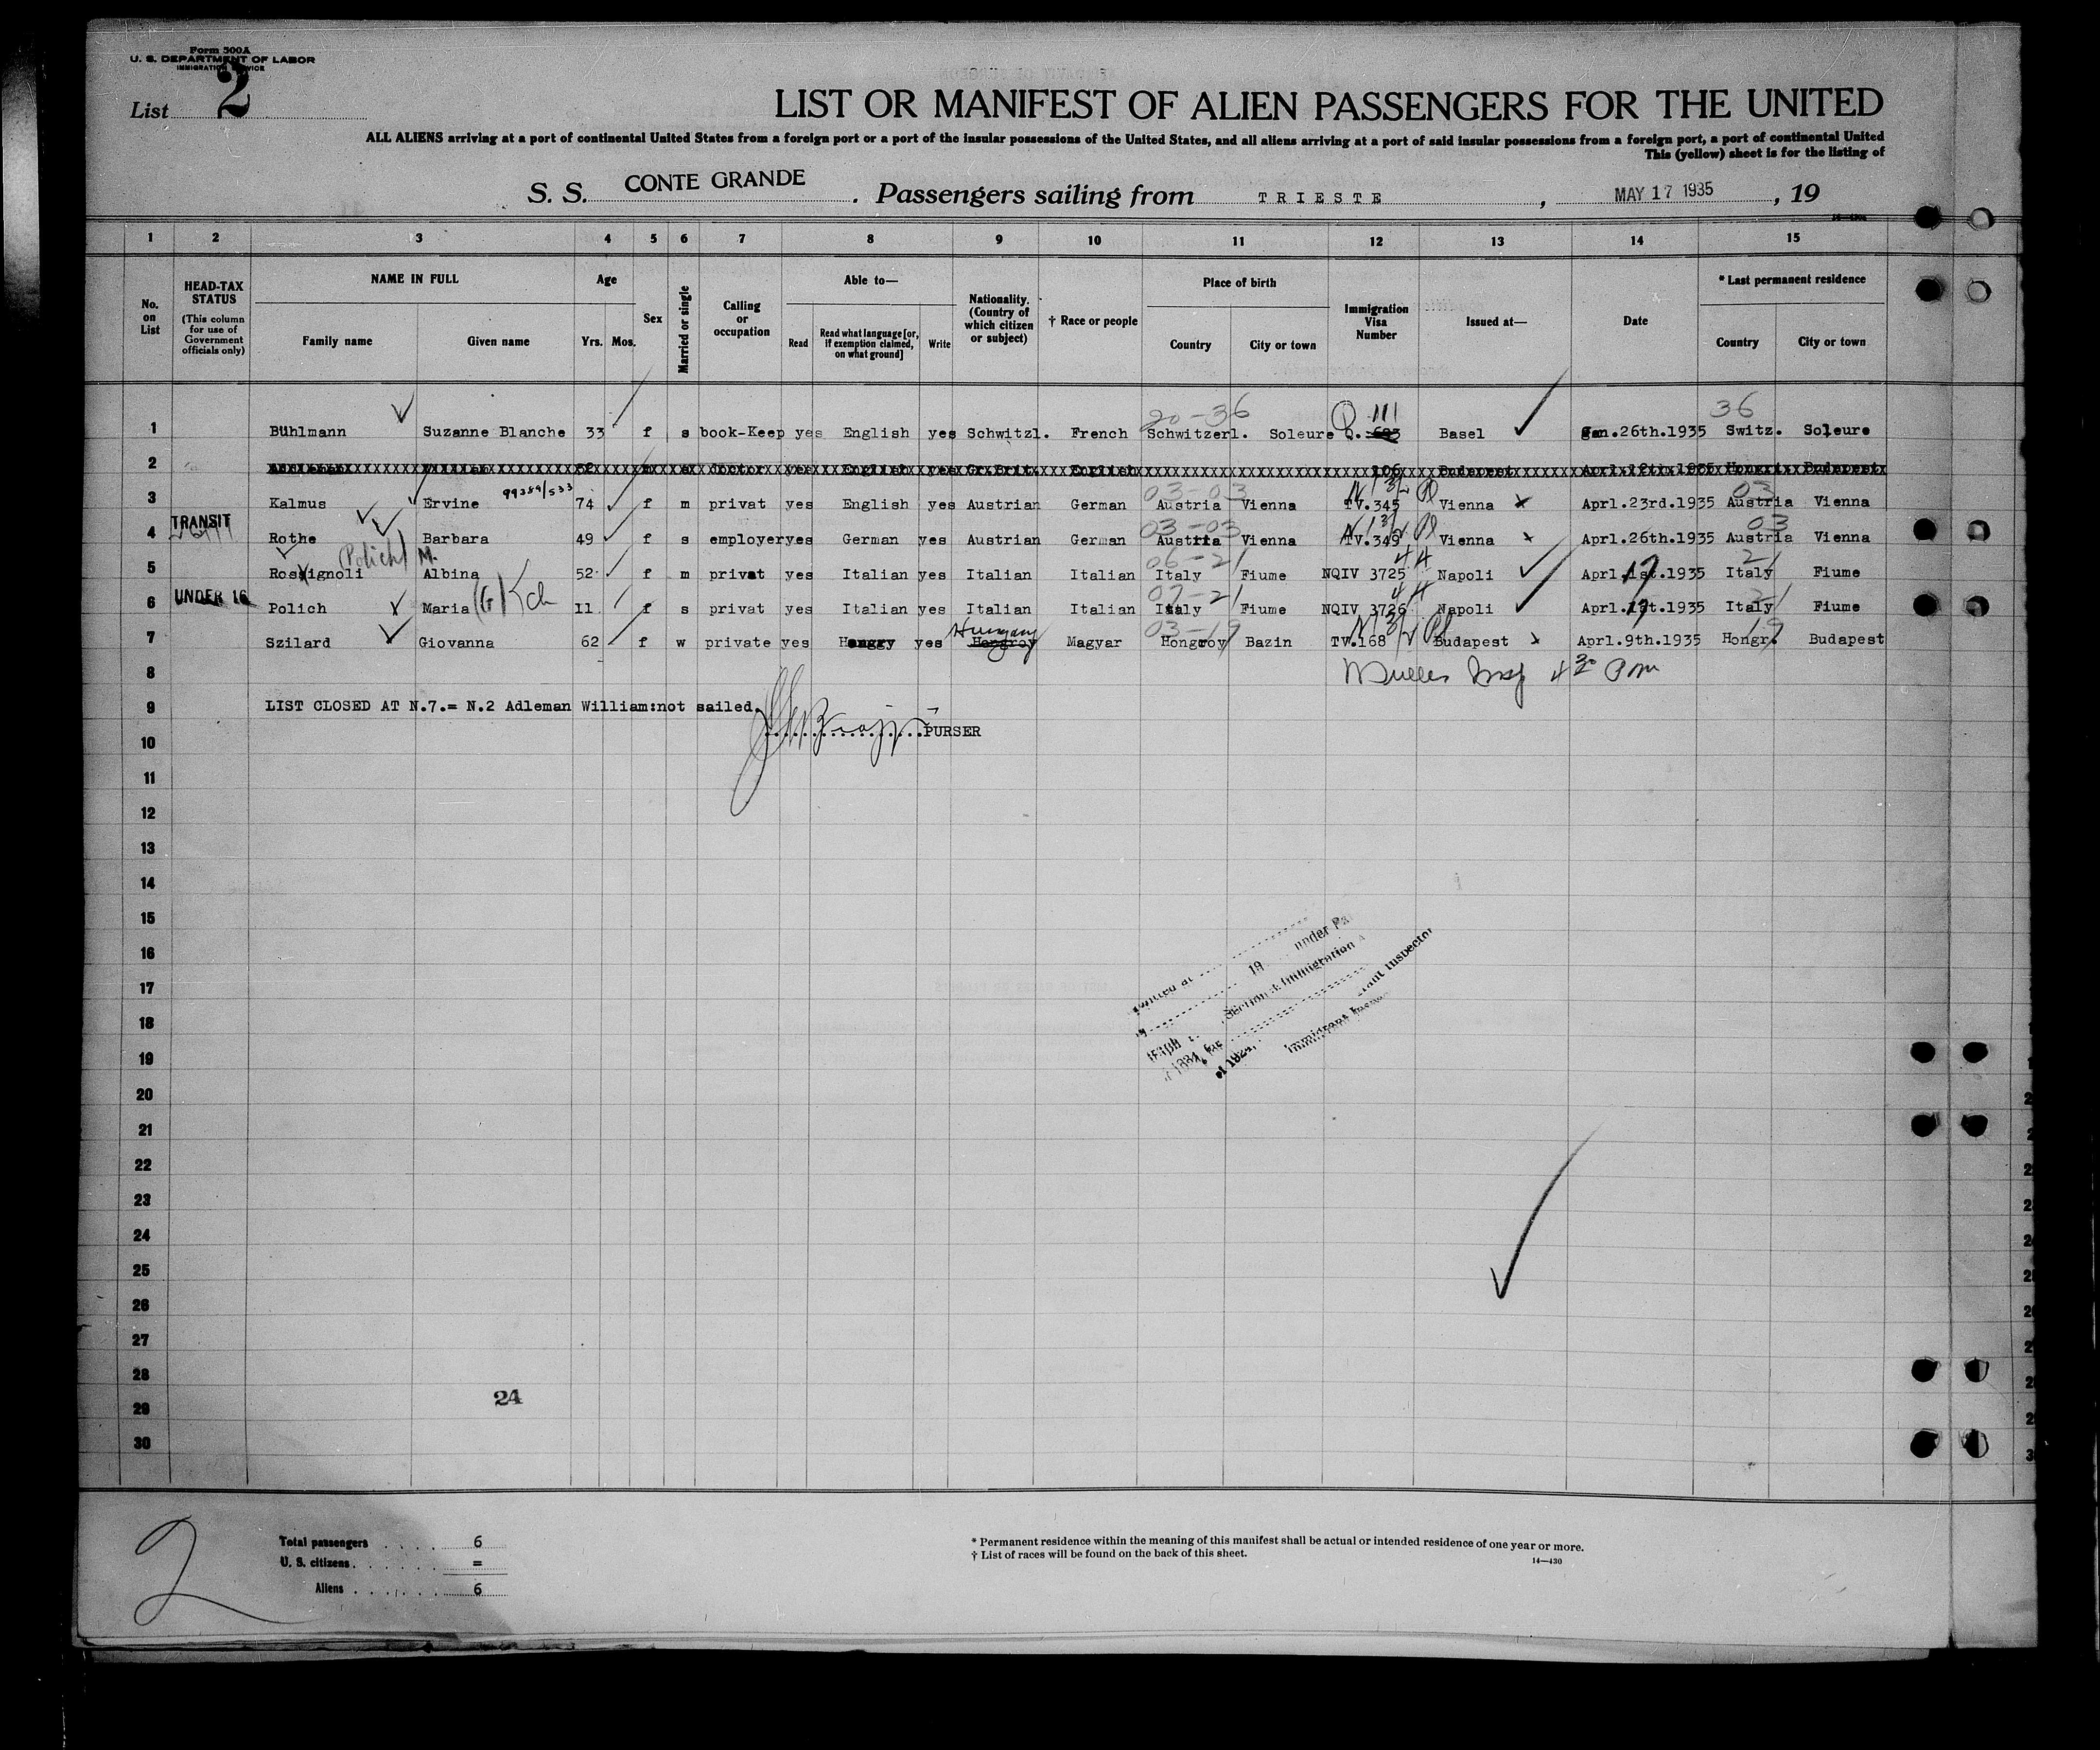 Form 500A
U. S. DEPARTMENT OF LABOR
IMMIGRATION SERVICE
List 2
LIST OR MANIFEST OF ALIEN PASSENGERS FOR THE UNITED
ALL ALIENS arriving at a port of continental United States from a foreign port or a port of the insular possessions of the United States, and all aliens arriving at a port of said insular possessions from a foreign port, a port of continental United
This (yellow) sheet is for the listing of
S. S. CONTE GRANDE . Passengers sailing from TRIESTE , MAY 17 1935 , 19
1 2 3 4 5 6 7 8 9 10 11 12 13 14 15
No. on List
HEAD-TAX STATUS (This column for use of Government officials only)
NAME IN FULL Family name Given name
Age Yrs. Mos.
Sex
Married or single
Calling or occupation
Able to— Read Read what language [or, if exemption claimed, on what ground] Write
Nationality. (Country of which citizen or subject)
† Race or people
Place of birth Country City or town
Immigration Visa Number
Issued at—
Date
* Last permanent residence Country City or town
20-36 111 36
1 Bühlmann Suzanne Blanche 33 f s book-Keep yes English yes Schwitzl. French Schwitzerl. Soleure Q. 693 Basel Jan.26th.1935 Switz. Soleure
2 doctor yes English yes Gr.Brit. English 106 Budapest Aprl.12th.1935 Hongr. Budapest
99389/533 03-03 03
3 Kalmus Ervine 74 f m privat yes English yes Austrian German Austria Vienna TV.345 Vienna Aprl.23rd.1935 Austria Vienna
TRANSIT 03-03 03
4 Rothe Barbara 49 f s employer yes German yes Austrian German Austria Vienna TV.349 Vienna Aprl.26th.1935 Austria Vienna
Polich M. 06-21 21
5 Rossignoli Albina 52 f m privat yes Italian yes Italian Italian Italy Fiume NQIV 3725 Napoli Aprl.17.1935 Italy Fiume
UNDER 16 (G) 07-21 21
6 Polich Maria 11 f s privat yes Italian yes Italian Italian Italy Fiume NQIV 3726 Napoli Aprl.17.1935 Italy Fiume
Hungary 03-19 19
7 Szilard Giovanna 62 f w private yes Hunggy yes Hongroy Magyar Hongroy Bazin TV.168 Budapest Aprl.9th.1935 Hongr. Budapest
8 4 30 Pm
9 LIST CLOSED AT N.7.= N.2 Adleman William:not sailed.
10 PURSER
11
12
13
14
15
16
17
18
19
20
21
22
23
24
25
26
27
28
29
30
under Pa
19
Section Immigration A
of 1924,
Immigrant Inspector
24
2
Total passengers . . . . 6
U. S. citizens . . . . . . =
Aliens . . . . . . 6
* Permanent residence within the meaning of this manifest shall be actual or intended residence of one year or more.
† List of races will be found on the back of this sheet.
14—430